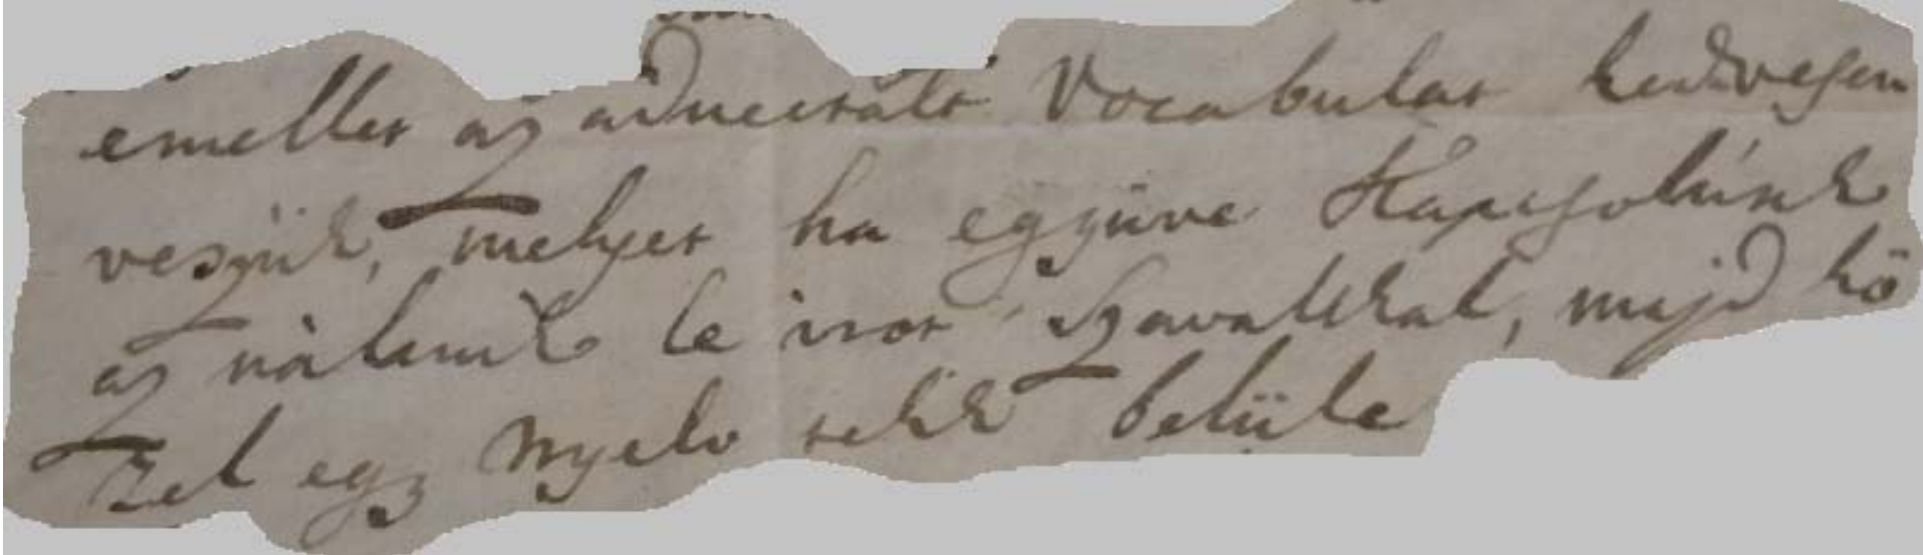 emellet az adnectált Vocabular kedvesen
veszük, melyet ha egyjüve Kapcsolúnk
az nálunk le irot Szavakkal, majd kö
zel egy Nyelv telik belüle